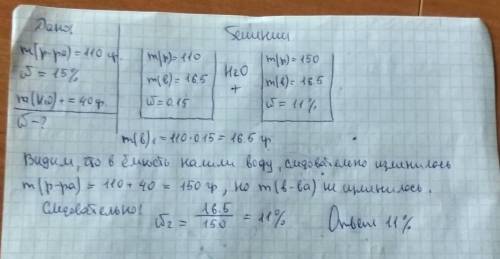 Дано: Решение
m(р-ра) = 110 гр.
ω = 15%
m( ) + = 40 гр.
ω - ?
m(р) = 110
m(в) = 16.5
ω = 0.15
H2O
+
m(р) = 150
m(в) = 16.5
ω = 11%
m(в)₁ = 110 · 0.15 = 16.5 гр
Видим, что в ёмкость налили воду, следовательно изменилось
m(р-ра) = 110 + 40 = 150 гр, но m(в-ва) не изменилось.
Следовательно:
ω₂ = 16.5/150 = 11% Ответ 11%